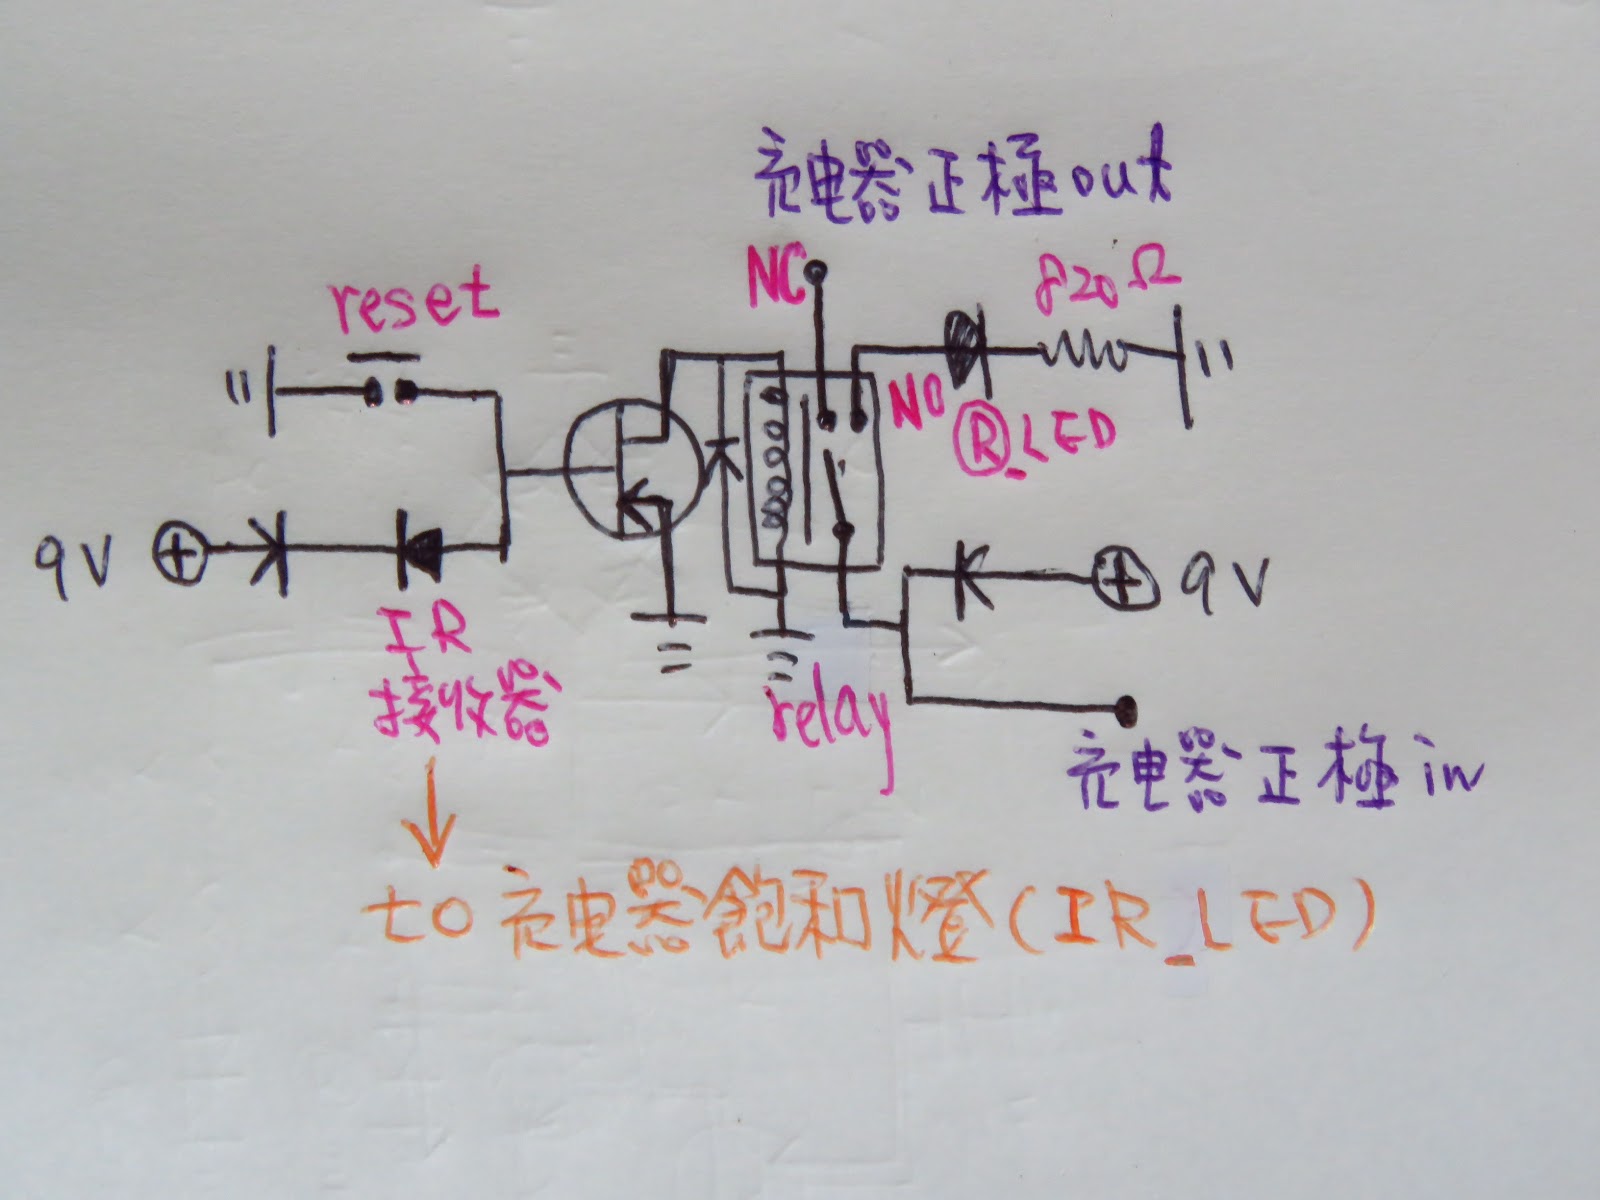 充电器正極out
NC
820Ω
reset
NO
Ⓡ_LED
9V
9V
IR
接收器
relay
充电器正極in
to 充电器飽和燈(IR_LED)